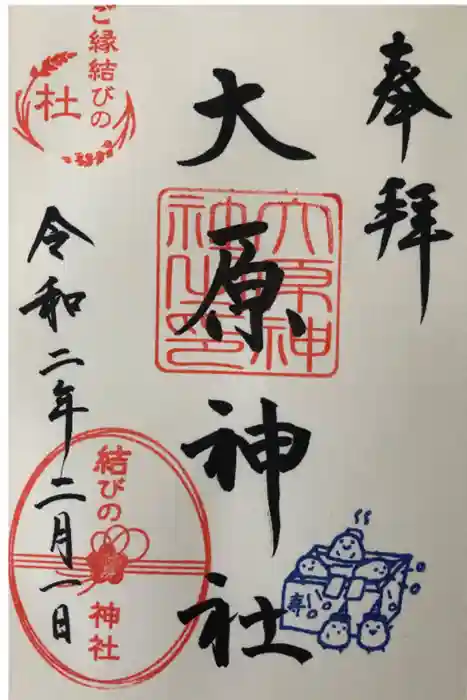 奉拝
大原神社
大原神社之印
ご縁結びの
杜
令和二年二月一日
結びの
神社
寿